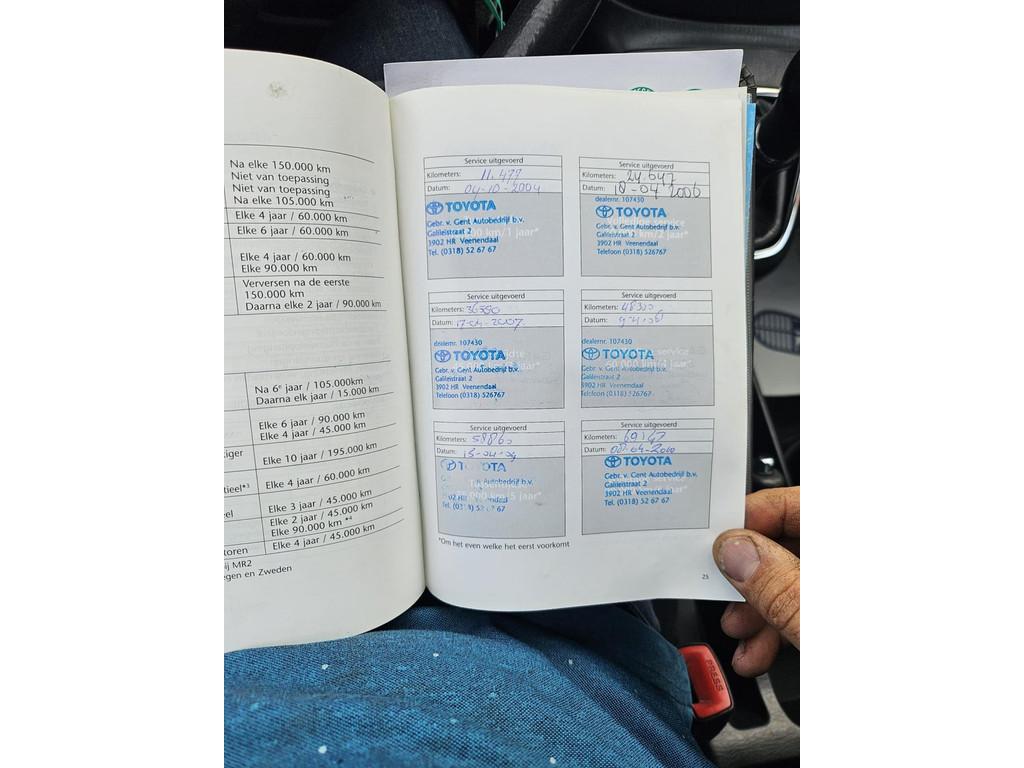 Na elke 150.000 km
Niet van toepassing
Niet van toepassing
Na elke 105.000 km
Elke 4 jaar / 60.000 km
Elke 6 jaar / 60.000 km
Elke 4 jaar / 60.000 km
Elke 90.000 km
Verversen na de eerste
150.000 km
Daarna elke 2 jaar / 90.000 km
Na 6e jaar / 105.000km
Daarna elk jaar / 15.000 km
Elke 6 jaar / 90.000 km
Elke 4 jaar / 45.000 km
tiger
Elke 10 jaar / 195.000 km
tieel*3
Elke 4 jaar / 60.000 km
eel
Elke 3 jaar / 45.000 km
Elke 2 jaar / 45.000 km
Elke 90.000 km *4
toren
Elke 4 jaar / 45.000 km
ij MR2
egen en Zweden
Service uitgevoerd
Kilometers: 11.477
Datum: 04-10-2004
TOYOTA
Gebr. v. Gent Autobedrijf b.v.
Galileistraat 2
km/1 jaar*
3902 HR Veenendaal
Tel. (0318) 52 67 67
Service uitgevoerd
Kilometers: 24.647
Datum: 10-04-2006
dealernr. 107430
TOYOTA
service
Gebr. v. Gent Autobedrijf b.v.
Galileistraat 2
km/2 jaar*
3902 HR Veenendaal
Telefoon (0318) 526767
Service uitgevoerd
Kilometers: 36550
Datum: 17-04-2007
dealernr. 107430
TOYOTA
Gebr. v. Gent Autobedrijf b.v.
Galileistraat 2
3902 HR Veenendaal
Telefoon (0318) 526767
Service uitgevoerd
Kilometers:
Datum:
dealernr. 107430
TOYOTA
service
Gebr. v. Gent Autobedrijf b.v.
Galileistraat 2
3902 HR Veenendaal
Telefoon (0318) 526767
Service uitgevoerd
Kilometers: 58860
Datum: 15-04-09
TOYOTA
Autobedrijf b.v.
km/5 jaar*
HR Veenendaal
Service uitgevoerd
Kilometers: 69147
Datum: 08-04-2010
TOYOTA
Gebr. v. Gent Autobedrijf b.v.
Galileistraat 2
3902 HR Veenendaal
Tel. (0318) 52 67 67
*Om het even welke het eerst voorkomt
25
PRESS